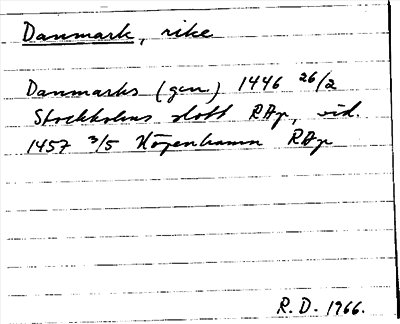 Danmark, rike
Danmarks (gen.) 1446 26/2
Stockholms slott RAp, vid.
1457 3/5 Högenhamn RAp
R.D. 1966.